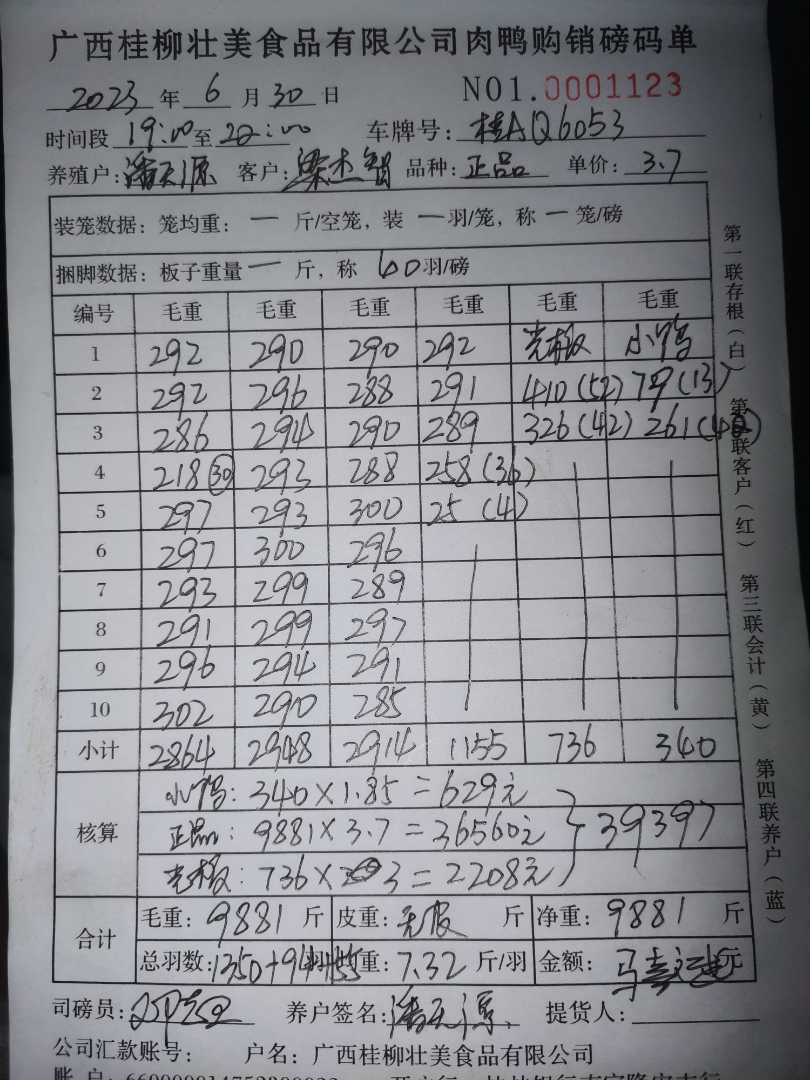 广西桂柳壮美食品有限公司肉鸭购销磅码单
2023 年 6 月 30 日 NO1.0001123
时间段 19:00 至 22:00 车牌号: 桂AQ6053
养殖户: 潘天源 客户: 梁杰智 品种: 正品 单价: 3.7
装笼数据: 笼均重: 一 斤/空笼, 装 一 羽/笼, 称 一 笼/磅
捆脚数据: 板子重量 一 斤, 称 40 羽/磅
编号 毛重 毛重 毛重 毛重 毛重 毛重
1 292 290 290 292 光板 小鸭
2 292 296 288 291 410(52) 79(13)
3 286 294 290 289 326(42) 261(42)
4 218(30) 293 288 258(36)
5 297 293 300 25(4)
6 297 300 296
7 293 299 289
8 291 299 297
9 296 294 291
10 302 290 285
小计 2864 2948 2914 1155 736 340
核算
小鸭: 340×1.85=629元
正品: 9881×3.7=36560元
光板: 736×3=2208元
39397
合计
毛重: 9881 斤 皮重: 斤 净重: 9881 斤
总羽数: 1350+94+55 重: 7.32 斤/羽 金额: 元
司磅员: 养户签名: 潘天源 提货人:
公司汇款账号: 户名: 广西桂柳壮美食品有限公司
第一联存根(白) 第二联客户(红) 第三联会计(黄) 第四联养户(蓝)